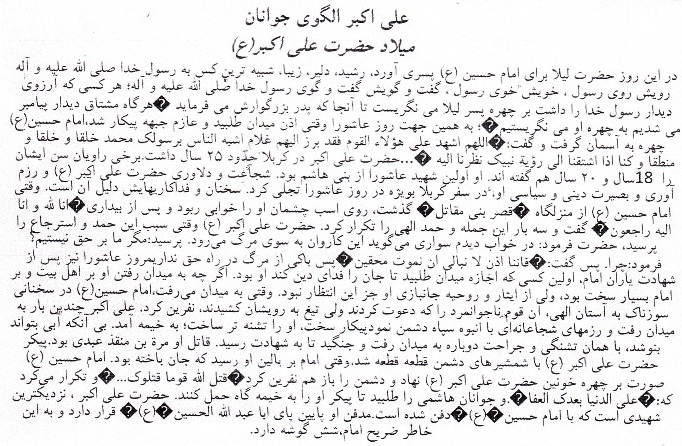 علی اکبر الگوی جوانان
میلاد حضرت علی اکبر(ع)
در این روز حضرت لیلا برای امام حسین (ع) پسری آورد، رشید، دلیر، زیبا، شبیه ترین کس به رسول خدا صلی الله علیه و آله
رویش روی رسول ، خویش خوی رسول ، گفت و گویش گفت و گوی رسول خدا صلی الله علیه و آله؛ هر کسی که آرزوی
دیدار رسول خدا را داشت بر چهره پسر لیلا می نگریست تا آنجا که پدر بزرگوارش می فرماید �هرگاه مشتاق دیدار پیامبر
می شدیم به چهره او می نگریستیم�؛ به همین جهت روز عاشورا وقتی اذن میدان طلبید و عازم جبهه پیکار شد،امام حسین(ع)
چهره به آسمان گرفت و گفت:�اللهم اشهد علی هؤلاء القوم فقد برز الیهم غلام اشبه الناس برسولک محمد خلقا و خلقا و
منطقا و کنا اذا اشتقنا الی رؤیة نبیک نظرنا الیه �...حضرت علی اکبر در کربلا حدود ۲۵ سال داشت.برخی راویان سن ایشان
را 18سال و ۲۰ سال هم گفته اند. او اولین شهید عاشورا از بنی هاشم بود. شجاعت و دلاوری حضرت علی اکبر (ع) و رزم
آوری و بصیرت دینی و سیاسی او، در سفر کربلا بویژه در روز عاشورا تجلی کرد. سخنان و فداکاریهایش دلیل آن است. وقتی
امام حسین (ع) از منزلگاه �قصر بنی مقاتل� گذشت، روی اسب چشمان او را خوابی ربود و پس از بیداری�انا لله و انا
الیه راجعون� گفت و سه بار این جمله و حمد الهی را تکرار کرد. حضرت علی اکبر (ع) وقتی سبب این حمد و استرجاع را
پرسید، حضرت فرمود: در خواب دیدم سواری می‌گوید این کاروان به سوی مرگ می‌رود. پرسید:مگر ما بر حق نیستیم؟
فرمود:چرا. پس گفت:�فاننا اذن لا نبالی ان نموت محقین�پس باکی از مرگ در راه حق نداریمروز عاشورا نیز پس از
شهادت یاران امام، اولین کسی که اجازه میدان طلبید تا جان را فدای دین کند او بود. اگر چه به میدان رفتن او بر اهل بیت و بر
امام بسیار سخت بود، ولی از ایثار و روحیه جانبازی او جز این انتظار نبود. وقتی به میدان می‌رفت،امام حسین(ع) در سخنانی
سوزناک به آستان الهی، آن قوم ناجوانمرد را که دعوت کردند ولی تیغ به رویشان کشیدند، نفرین کرد. علی اکبر چندین بار به
میدان رفت و رزمهای شجاعانه‌ای با انبوه سپاه دشمن نمودپیکار سخت، او را تشنه تر ساخت؛ به خیمه آمد. بی آنکه آبی بتواند
بنوشد، با همان تشنگی و جراحت دوباره به میدان رفت و جنگید تا به شهادت رسید. قاتل او مرة بن منقذ عبدی بود.پیکر
حضرت علی اکبر (ع) با شمشیرهای دشمن قطعه قطعه شد.وقتی امام بر بالین او رسید که جان باخته بود. امام حسین (ع)
صورت بر چهره خونین حضرت علی اکبر (ع) نهاد و دشمن را باز هم نفرین کرد�قتل الله قوما قتلوک...�و تکرار می‌کرد
که:�علی الدنیا بعدک العفا�.و جوانان هاشمی را طلبید تا پیکر او را به خیمه گاه حمل کنند. حضرت علی اکبر ، نزدیکترین
شهیدی است که با امام حسین�(ع)�دفن شده است.مدفن او پایین پای ابا عبد الله الحسین�(ع)� قرار دارد و به این
خاطر ضریح امام،شش گوشه دارد.